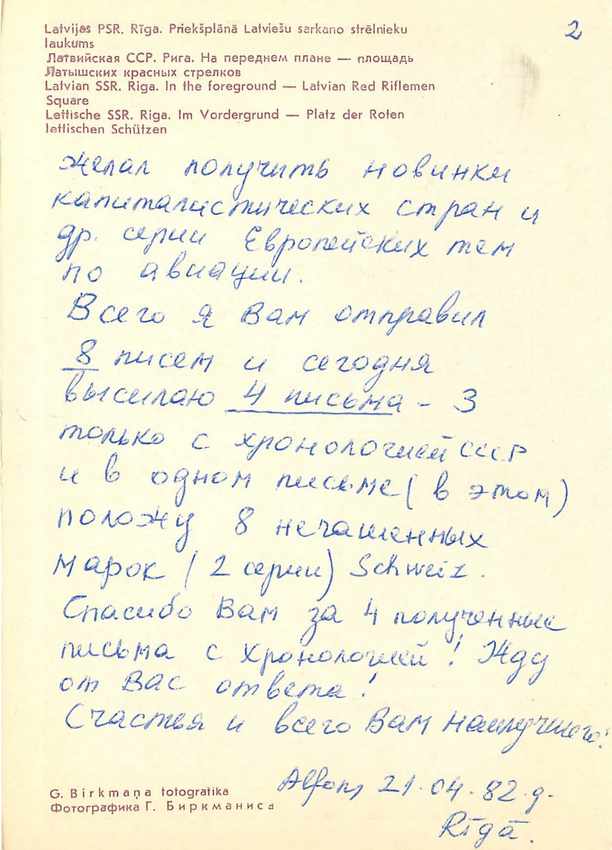 2
Latvijas PSR. Rīga. Priekšplānā Latviešu sarkano strēlnieku
laukums
Латвийская ССР. Рига. На переднем плане — площадь
Латышских красных стрелков
Latvian SSR. Riga. In the foreground — Latvian Red Riflemen
Square
Lettische SSR. Riga. Im Vordergrund — Platz der Roten
lettischen Schützen
желал получить новинки
капиталистических стран и
др. серии Европейских тем
по авиации.
Всего я Вам отправил
8 писем и сегодня
высылаю 4 письма - 3
только с хронологией СССР
и в одном письме (в этом)
положу 8 нечашенных
марок (2 серии) Schweiz.
Спасибо Вам за 4 полученные
письма с хронологией! Жду
от Вас ответа!
Счастья и всего Вам наилучшего!
Alfons 21.04.82.g.
Rīgā.
G. Birkmaņa fotogrāfika
Фотографика Г. Биркманиса